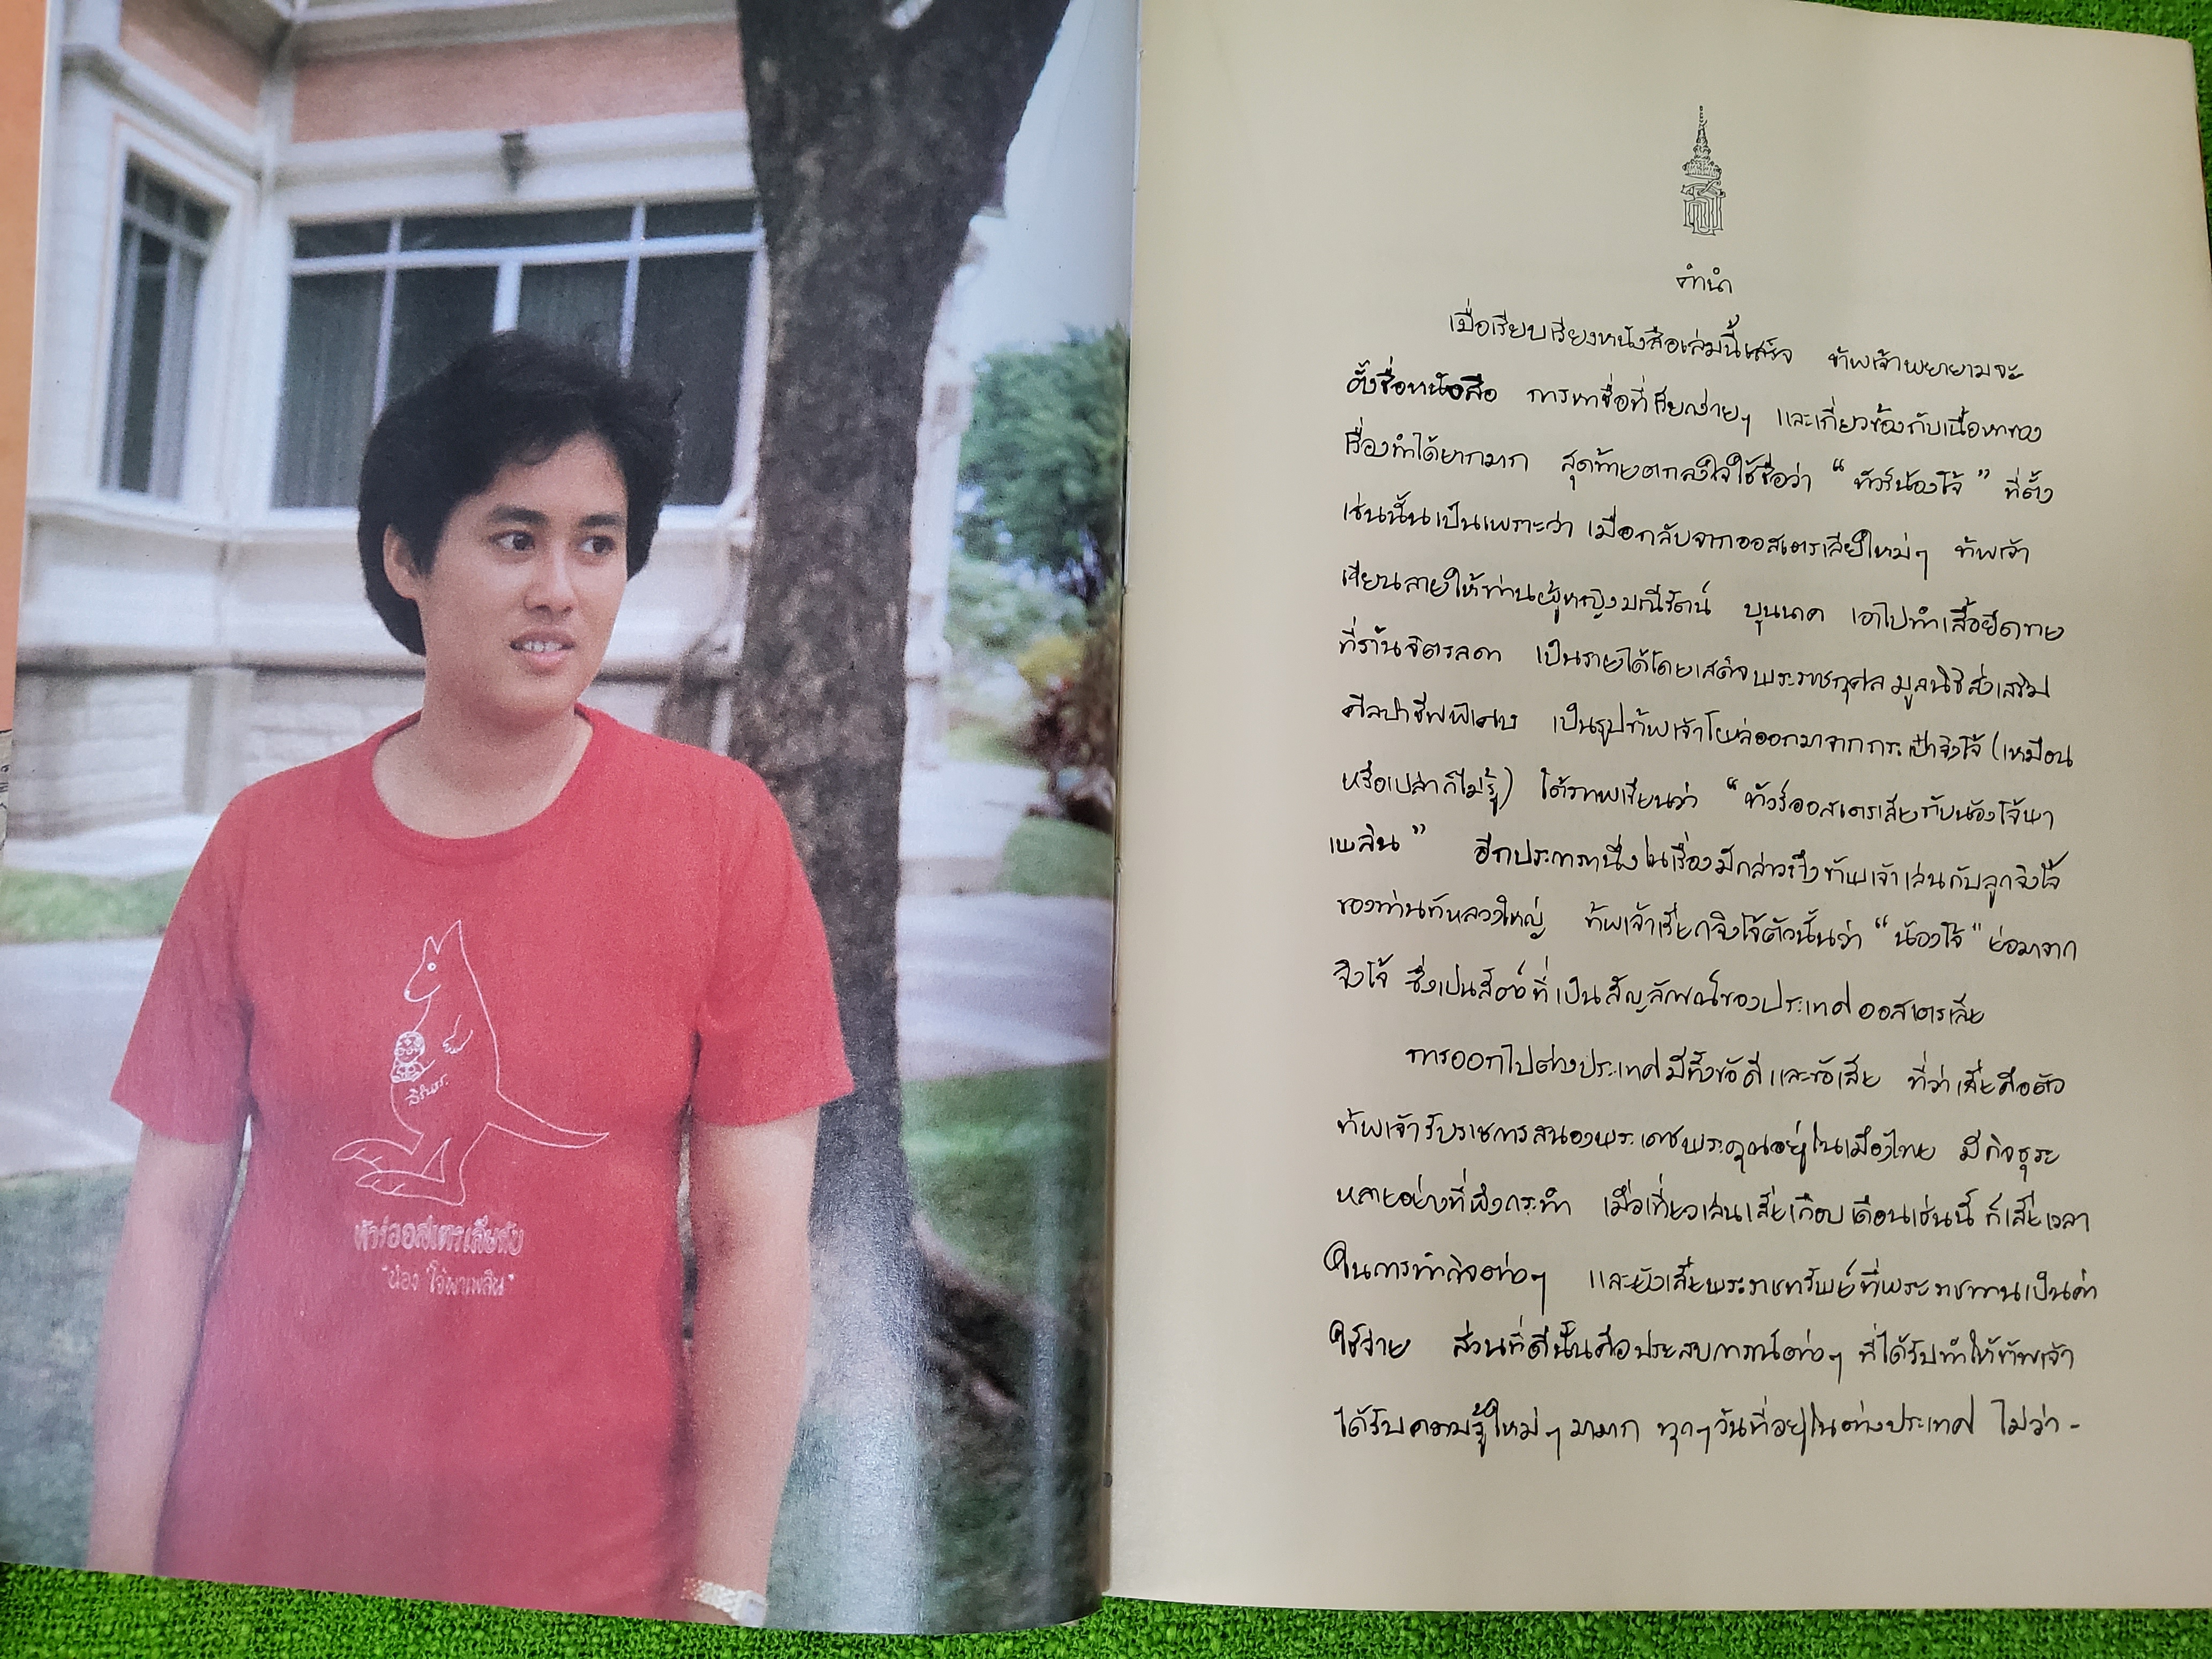 สิรินธร
ทัวร์ออสเตรเลียกับ
"น้องโจ้พาเพลิน"
คำนำ
เมื่อเรียบเรียงหนังสือเล่มนี้เสร็จ ข้าพเจ้าพยายามจะ
ตั้งชื่อหนังสือ การหาชื่อที่เรียกง่ายๆ และเกี่ยวข้องกับเนื้อหาของ
เรื่องทำได้ยากมาก สุดท้ายตกลงใจใช้ชื่อว่า “ ทัวร์น้องโจ้ ” ที่ตั้ง
เช่นนั้นเป็นเพราะว่า เมื่อกลับจากออสเตรเลียใหม่ๆ ข้าพเจ้า
เขียนลายให้ท่านผู้หญิงมณีรัตน์ บุนนาค เอาไปทำเสื้อยืดขาย
ที่ร้านจิตรลดา เป็นรายได้โดยเสด็จพระราชกุศลมูลนิธิส่งเสริม
ศิลปาชีพพิเศษ เป็นรูปข้าพเจ้าโผล่ออกมาจากกระเป๋าจิงโจ้ (เหมือน
หรือเปล่าก็ไม่รู้) ใต้ภาพเขียนว่า “ทัวร์ออสเตรเลียกับน้องโจ้พา
เพลิน” อีกประการหนึ่งในเรื่องมีกล่าวถึงข้าพเจ้าเล่นกับลูกจิงโจ้
ของท่านทูหลวงใหญ่ ข้าพเจ้าเรียกจิงโจ้ตัวนั้นว่า “น้องโจ้” ย่อมาจาก
จิงโจ้ ซึ่งเป็นสัตว์ที่เป็นสัญลักษณ์ของประเทศออสเตรเลีย
การออกไปต่างประเทศมีทั้งข้อดีและข้อเสีย ที่ว่าเสียคือตัว
ข้าพเจ้ารับราชการสนองพระเดชพระคุณอยู่ในเมืองไทย มีกิจธุระ
หลายอย่างที่พึงกระทำ เมื่อเที่ยวเล่นเสียเกือบเดือนเช่นนี้ ก็เสียเวลา
ในการทำกิจต่างๆ และยังเสียพระราชทรัพย์ที่พระราชทานเป็นค่า
ใช้จ่าย ส่วนที่ดีนั้นคือประสบการณ์ต่างๆ ที่ได้รับทำให้ข้าพเจ้า
ได้รับความรู้ใหม่ๆมามาก ทุกๆวันที่อยู่ในต่างประเทศ ไม่ว่า-